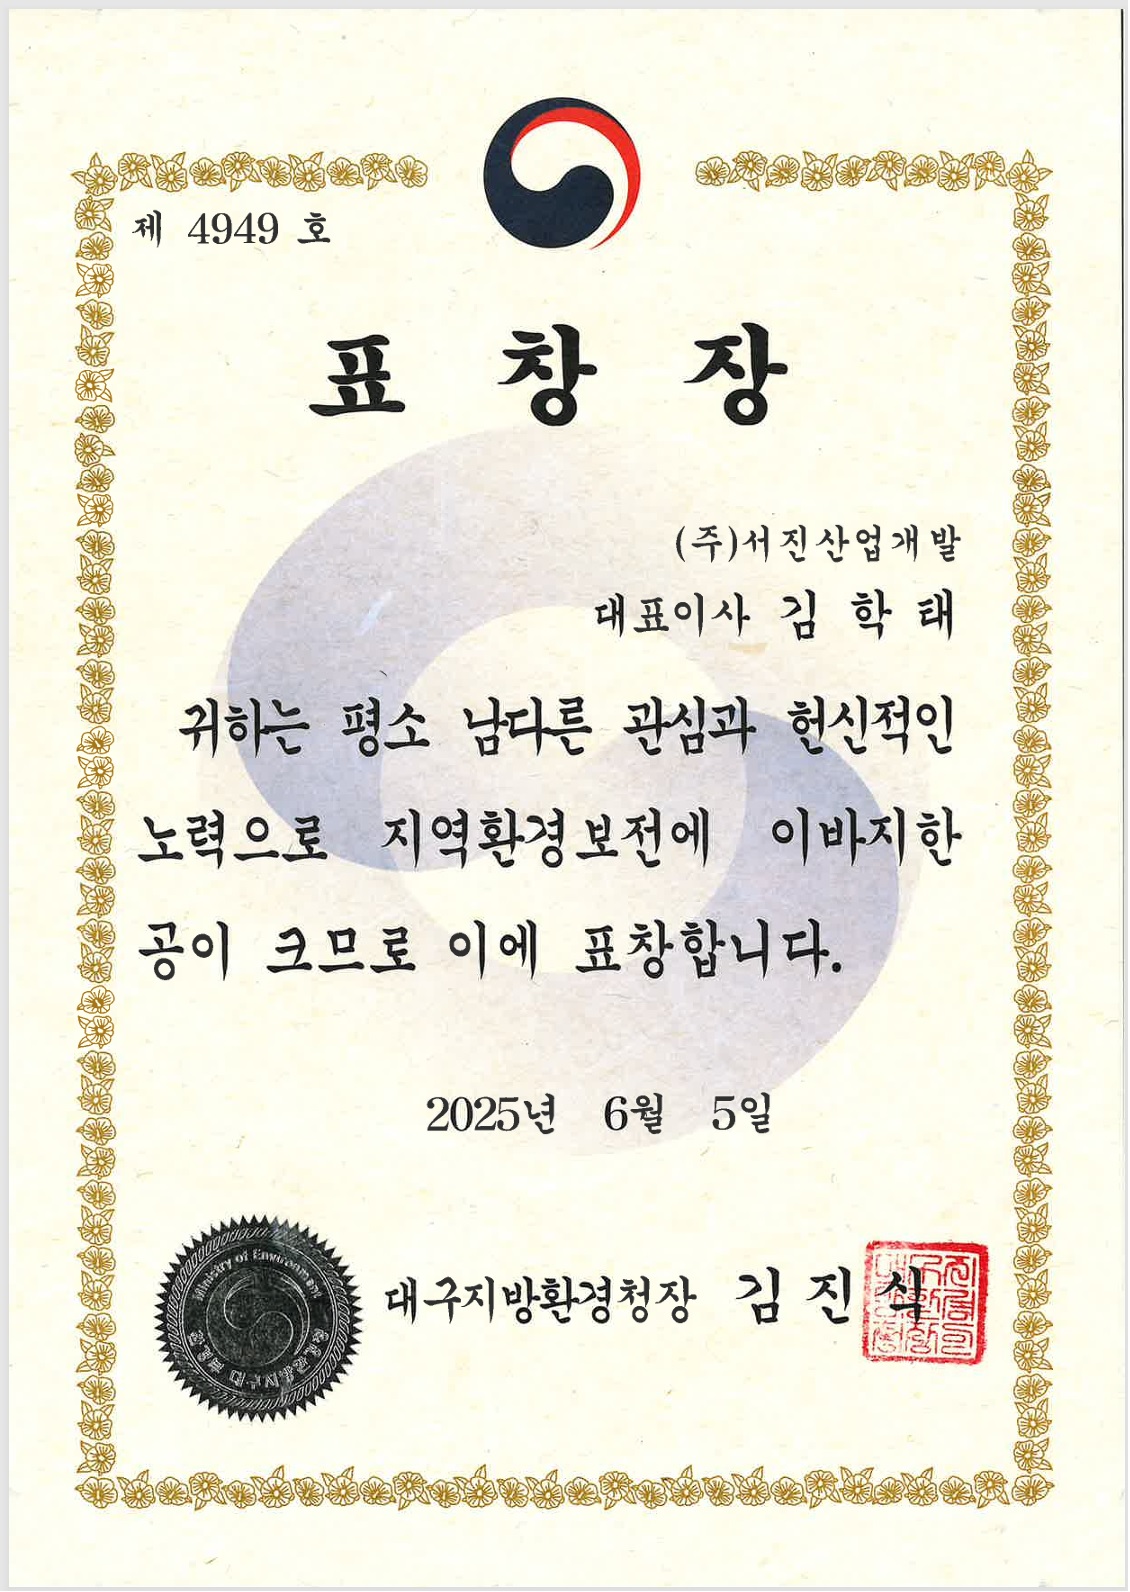 제 4949 호
표 창 장
(주)서진산업개발
대표이사 김 학 태
귀하는 평소 남다른 관심과 헌신적인
노력으로 지역환경보전에 이바지한
공이 크므로 이에 표창합니다.
2025년 6월 5일
Ministry of Environment
대구지방환경청장 김 진 식